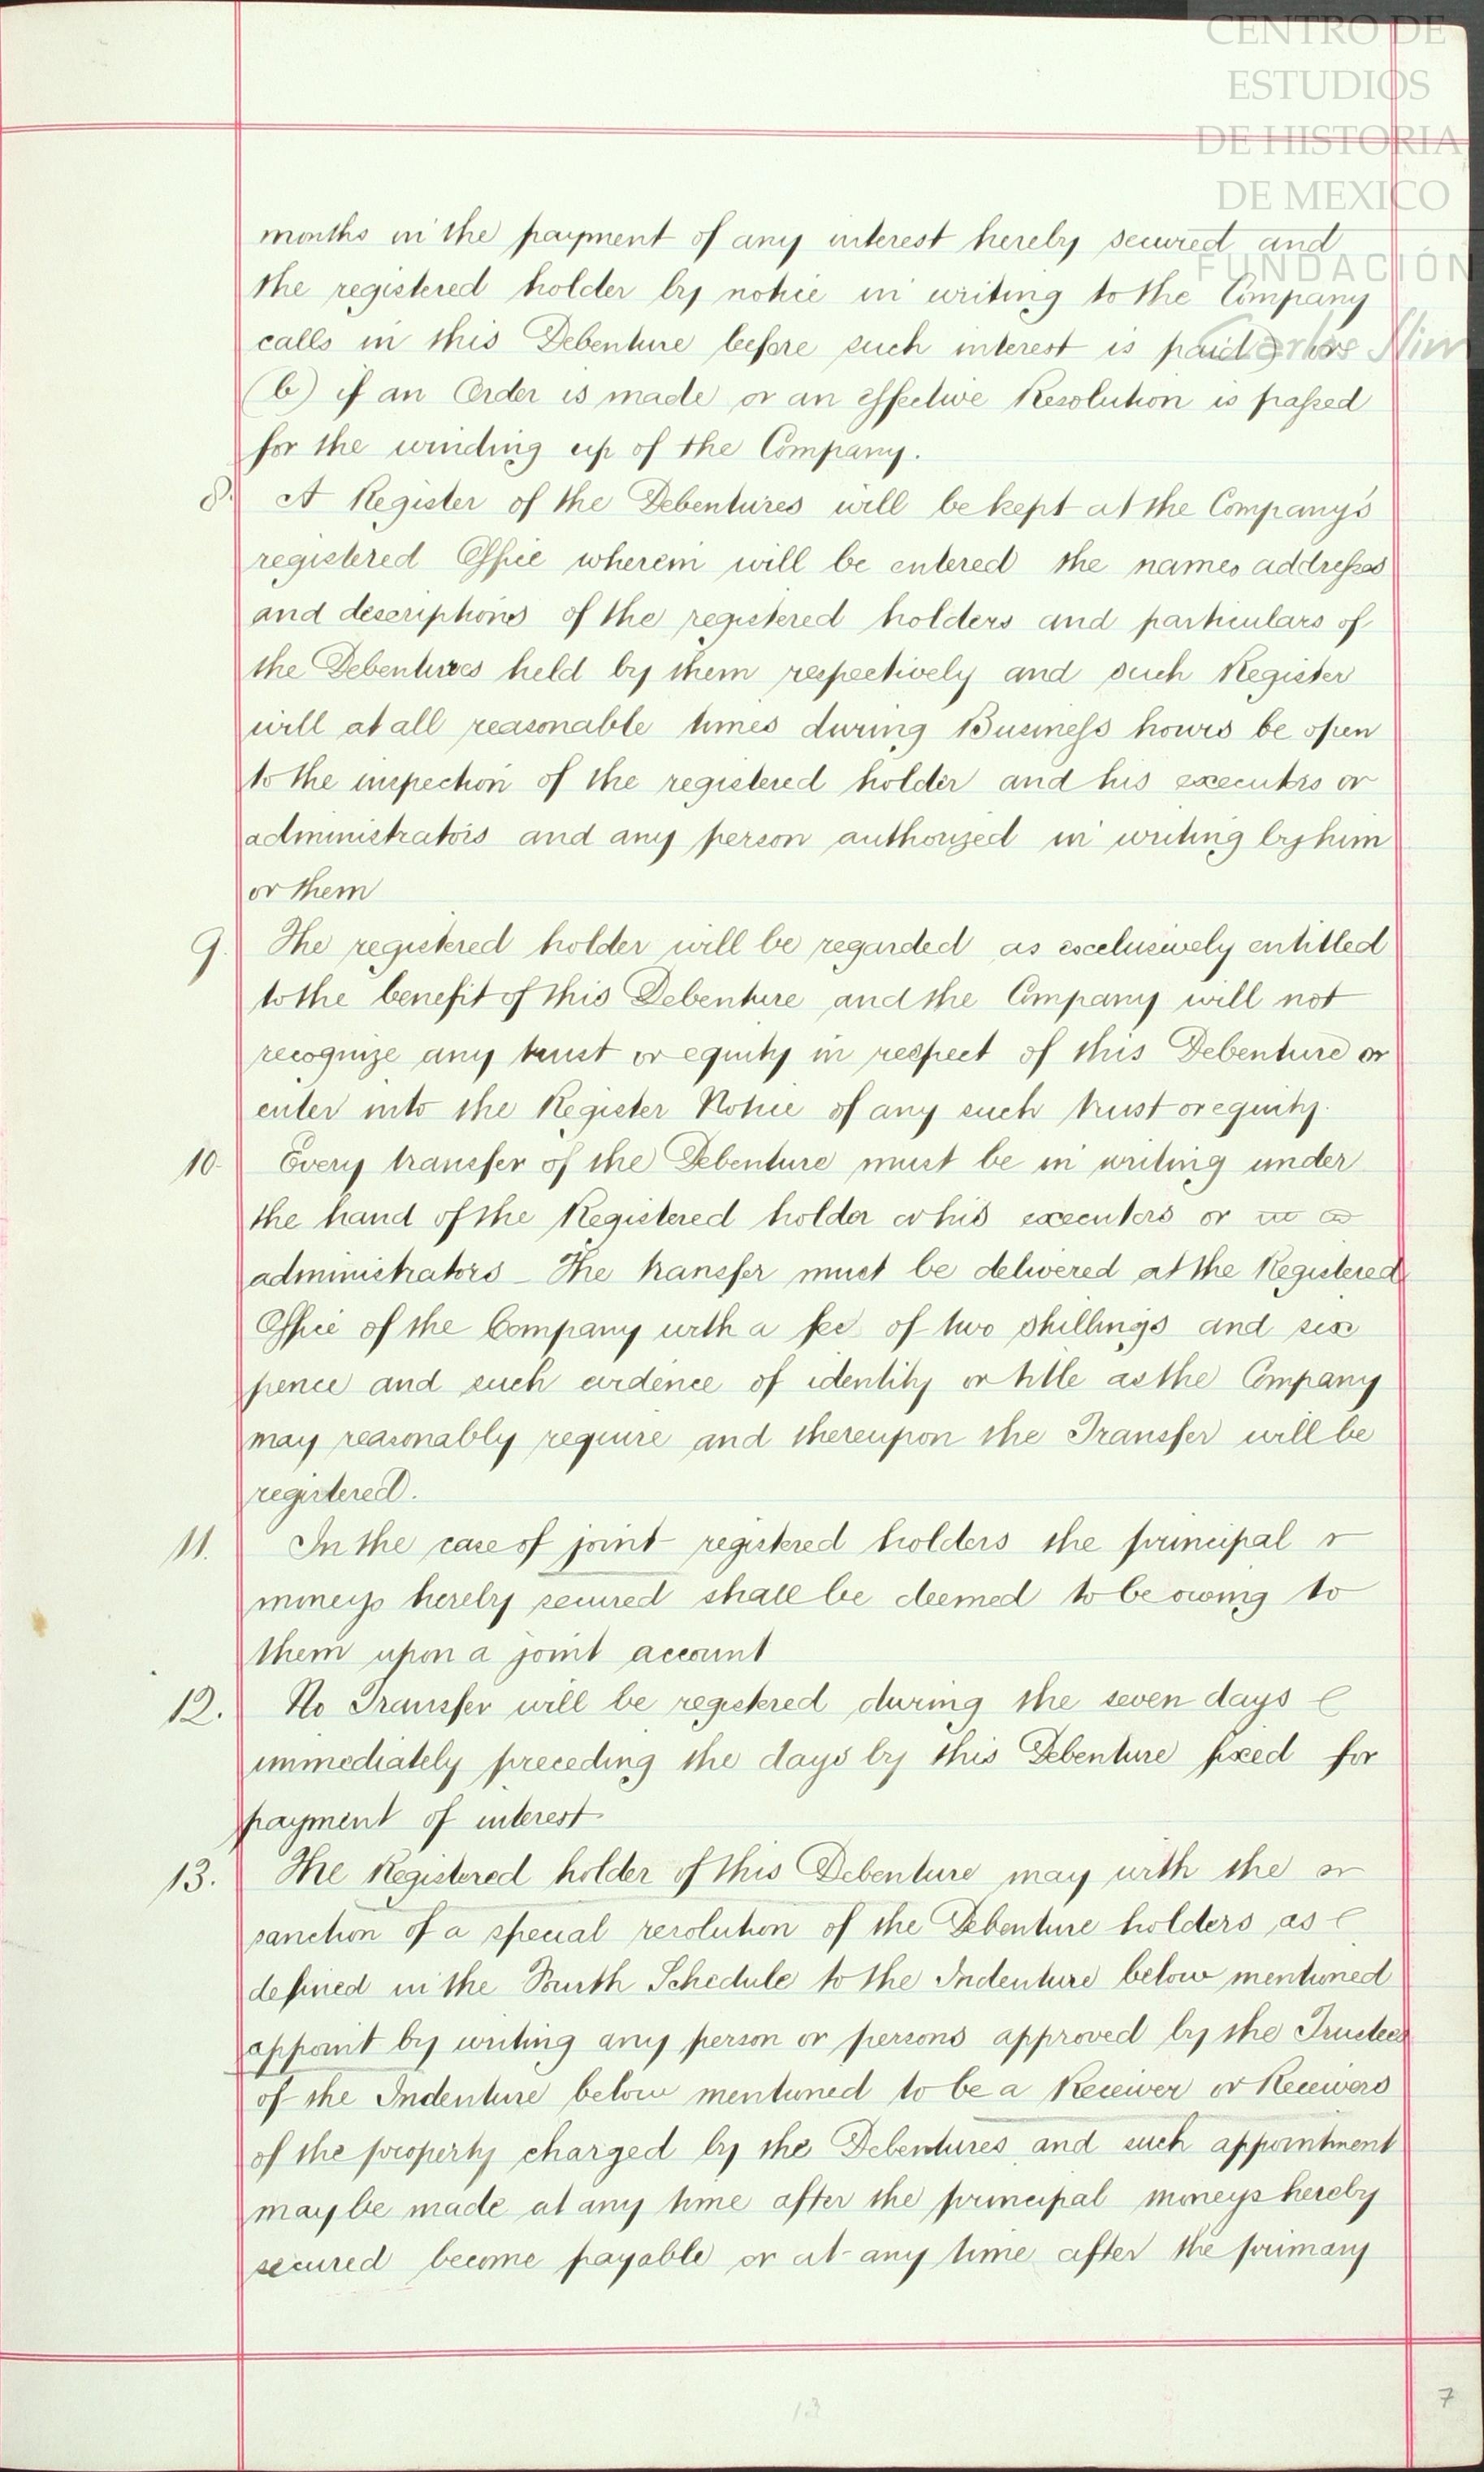 CENTRO DE
ESTUDIOS
DE HISTORIA
DE MEXICO
FUNDACIÓN
Carlos Slim
months in the payment of any interest hereby secured and
the registered holder by notice in writing to the Company
calls in this Debenture before such interest is paid) or
(b) if an Order is made or an effective Resolution is passed
for the winding up of the Company.
8. A Register of the Debentures will be kept at the Company's
registered Office wherein will be entered the names addresses
and descriptions of the registered holders and particulars of
the Debentures held by them respectively and such Register
will at all reasonable times during Business hours be open
to the inspection of the registered holder and his executors or
administrators and any person authorized in writing by him
or them
9. The registered holder will be regarded as exclusively entitled
to the benefit of this Debenture and the Company will not
recognize any trust or equity in respect of this Debenture or
enter into the Register Notice of any such trust or equity.
10. Every transfer of the Debenture must be in writing under
the hand of the Registered holder or his executors or
administrators – The transfer must be delivered at the Registered
Office of the Company with a fee of two shillings and six
pence and such evidence of identity or title as the Company
may reasonably require and thereupon the Transfer will be
registered.
11. In the case of joint registered holders the principal
moneys hereby secured shall be deemed to be owing to
them upon a joint account
12. No Transfer will be registered during the seven days
immediately preceding the days by this Debenture fixed for
payment of interest
13. The Registered holder of this Debenture may with the
sanction of a special resolution of the Debenture holders as
defined in the Fourth Schedule to the Indenture below mentioned
appoint by writing any person or persons approved by the Trustees
of the Indenture below mentioned to be a Receiver or Receivers
of the property charged by the Debentures and such appointment
may be made at any time after the principal moneys hereby
secured become payable or at any time after the primary
13
7